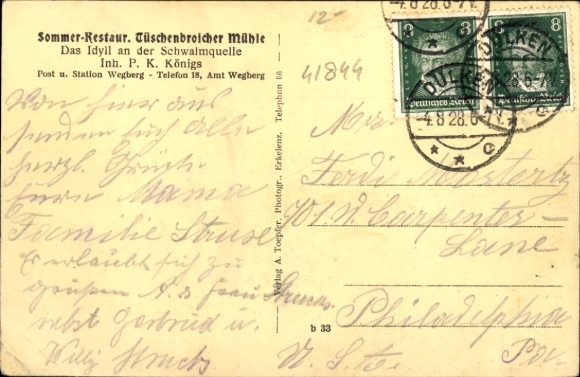 Sommer-Restaur. Tüschenbroicher Mühle
Das Idyll an der Schwalmquelle
Inh. P. K. Königs
Post u. Station Wegberg - Telefon 18, Amt Wegberg
Von hier aus
senden Euch alle
herzl. Grüße
Eure Mama
Familie Struse
Es erlaubt sich zu
grüßen A. & Frau
nebst Gertrud u.
Willy
Verlag A. Toepfer, Photogr., Erkelenz. Telephon 66
b 33
12-
41844
8
8
Deutsches Reich
Deutsches Reich
DÜLKEN
-4.8.28.6-7N.
DÜLKEN
-4.8.28.6-7N.
* * c
Mr.
Ferdi
701 W. Carpenter-
Lane
Philadelphia
U. S. A. Pa.